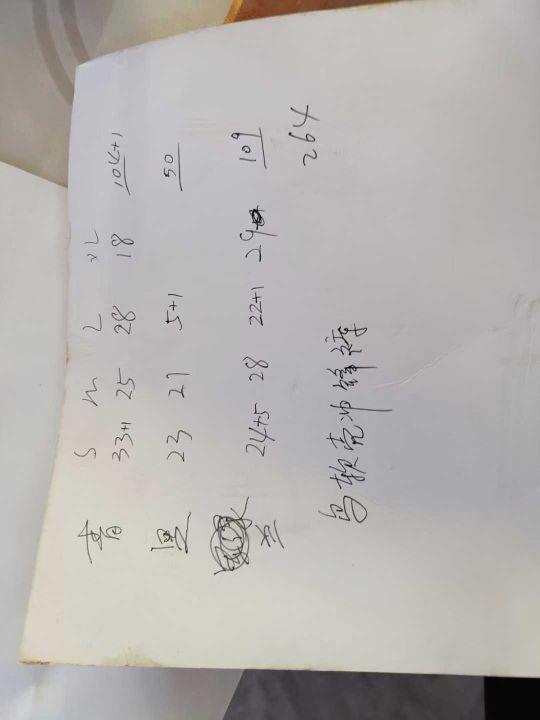 S m L XL
青 33+1 25 28 18 104+1
黑 23 21 5+1 50
兰 24+5 28 22+1 29 109
264
鸟软壳冲锋裤